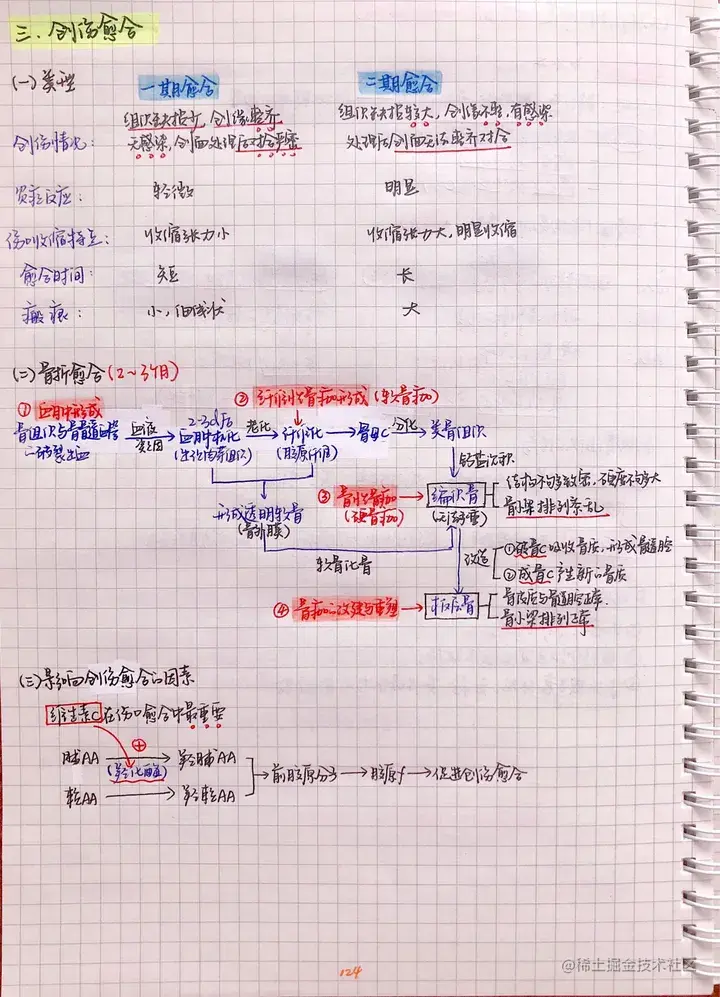 三、创伤愈合
(一)类型
一期愈合 二期愈合
组织缺损少,创缘整齐 组织缺损较大,创缘不整,有感染
创伤情况: 无感染,创面处理后对合严密 处理后创面无法整齐对合
炎症反应: 轻微 明显
伤口收缩特点: 收缩张力小 收缩张力大,明显收缩
愈合时间: 短 长
瘢痕: 小,细线状 大
(二)骨折愈合(2~3个月)
① 血肿形成 ② 纤维性骨痂形成(软骨痂)
骨组织与骨髓 血液 2-3d后 老化 纤维化 骨母C 分化 类骨组织
断裂出血 凝固 血肿机化
(生长肉芽组织) (胶原纤维)
钙盐沉积
③ 骨性骨痂 编织骨 结构不够致密,硬度不够大
形成透明软骨 (硬骨痂) 骨小梁排列紊乱
(骨折膜)
软骨化骨 改造 ①破骨C吸收骨质,形成骨髓腔
②成骨C产生新的骨质
④ 骨痂的改建与重塑 板层骨 骨皮质与骨髓腔正常.
骨小梁排列正常
(三)影响创伤愈合的因素
维生素C在伤口愈合中最重要
⊕
脯AA 羟脯AA
(羟化酶) 前胶原分子 胶原f 促进创伤愈合
赖AA 羟赖AA
124
@稀土掘金技术社区